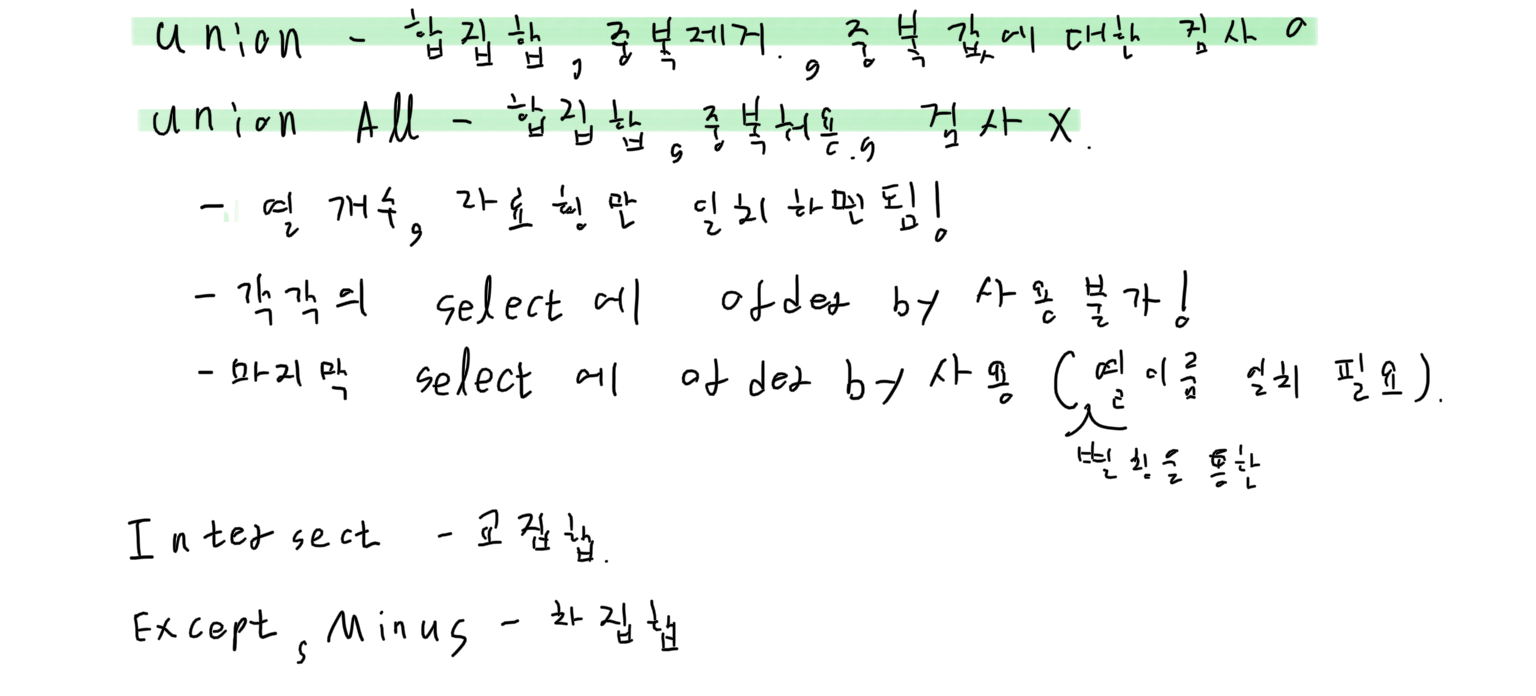 union - 합집합, 중복제거., 중복값에 대한 검사 o
union All - 합집합, 중복허용., 검사 x.
- 열 개수, 자료형만 일치하면됨!
- 각각의 select 에 order by 사용불가!
- 마지막 select 에 order by 사용 (열이름 일치 필요).
별칭을 통한
Intersect - 교집합.
Except, Minus - 차집합